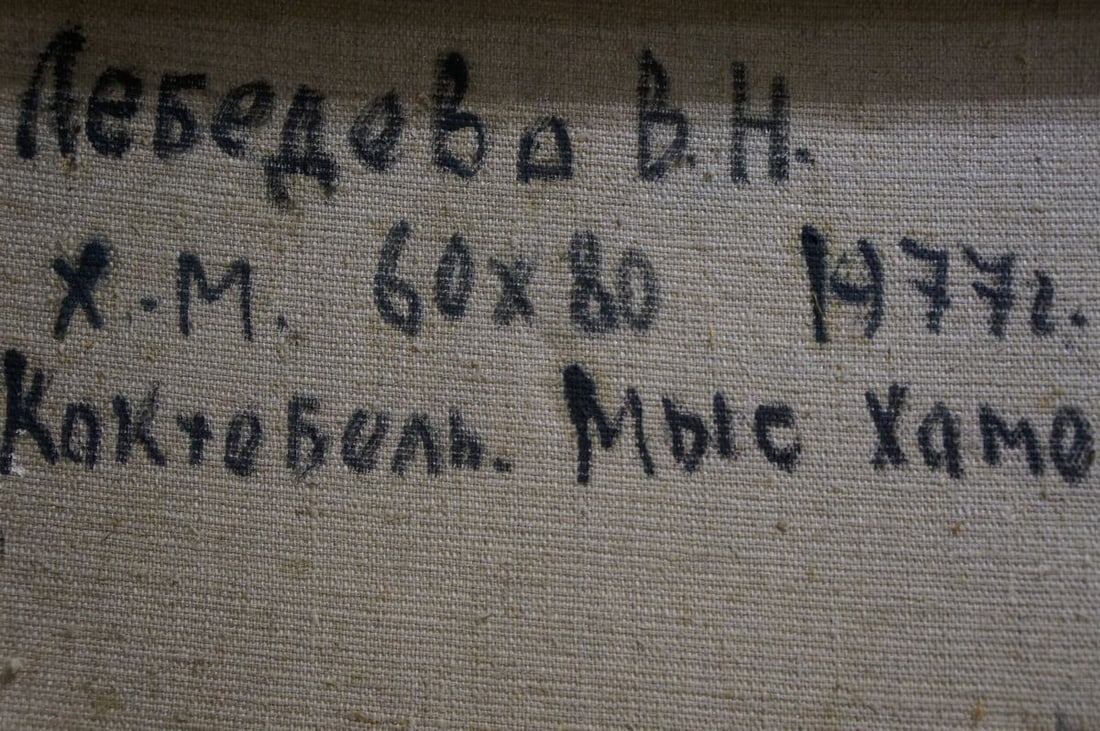 Лебедева В.Н.
х.м. 60х80 1977г.
Коктебель. Мыс Хаме